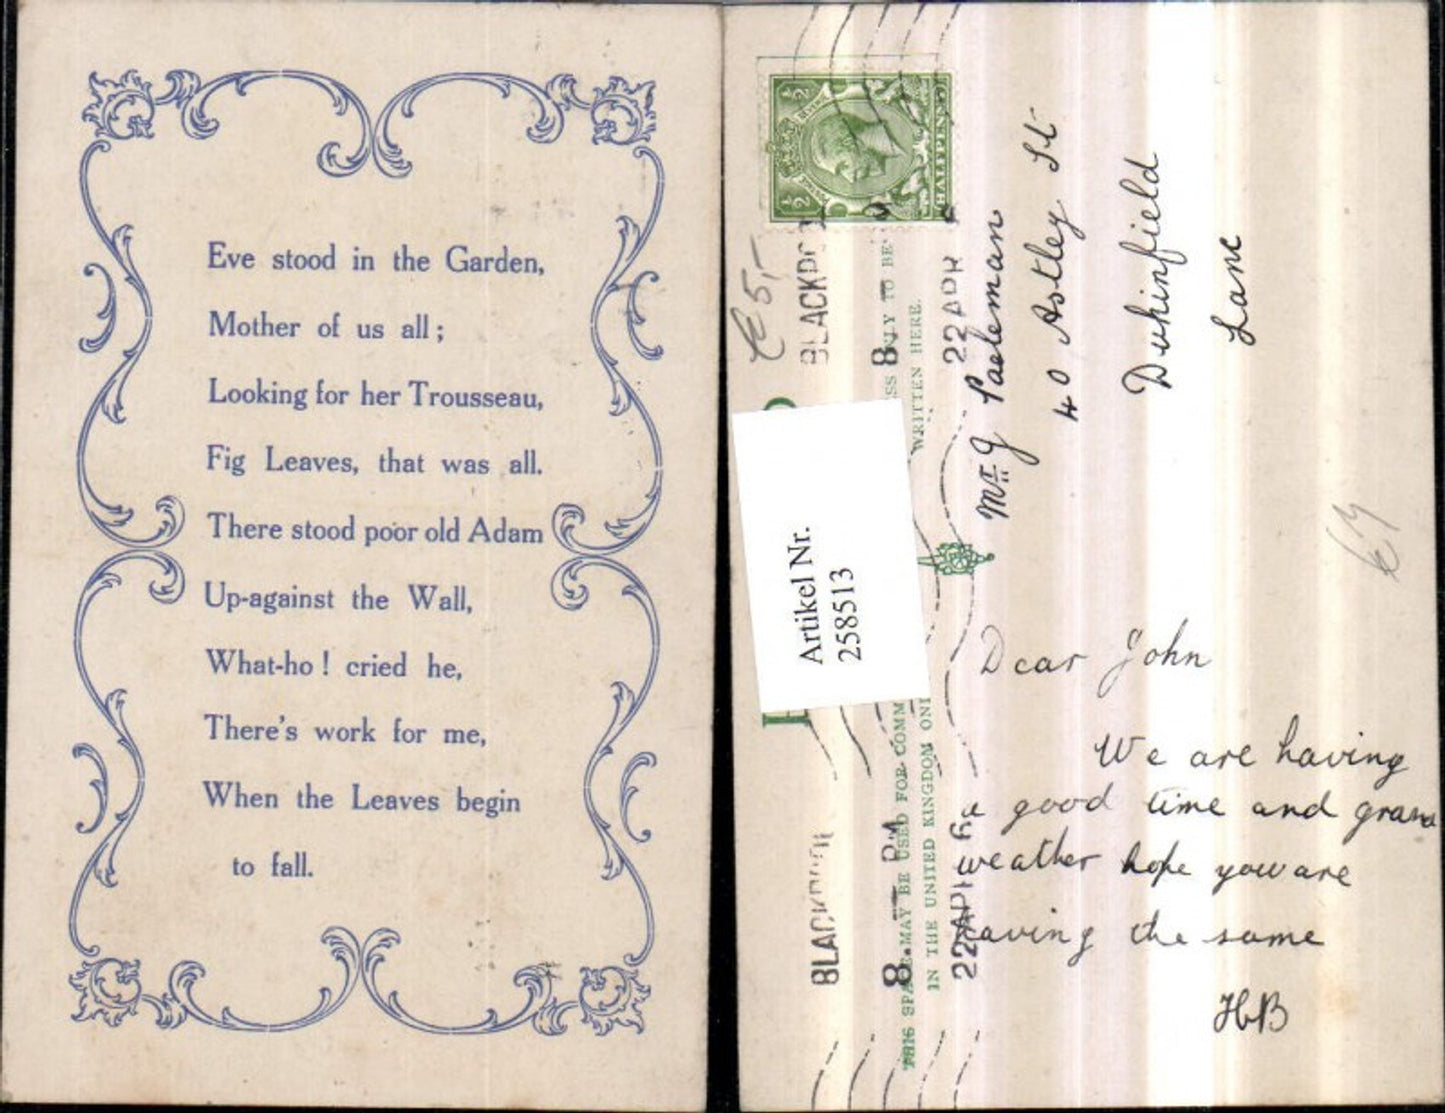 Eve stood in the Garden,
Mother of us all;
Looking for her Trousseau,
Fig Leaves, that was all.
There stood poor old Adam
Up-against the Wall,
What-ho! cried he,
There's work for me,
When the Leaves begin
to fall.
½ ½
HALFPENNY
BLACKPOOL
8
22 APR
WRITTEN HERE.
Artikel Nr.
258513
THIS SPACE MAY BE USED FOR COMM
IN THE UNITED KINGDOM ONL
8
22 AP
Mr J
40 Astley St
Dukinfield
Lane
Dear John
We are having
a good time and grand
weather hope you are
having the same
HB